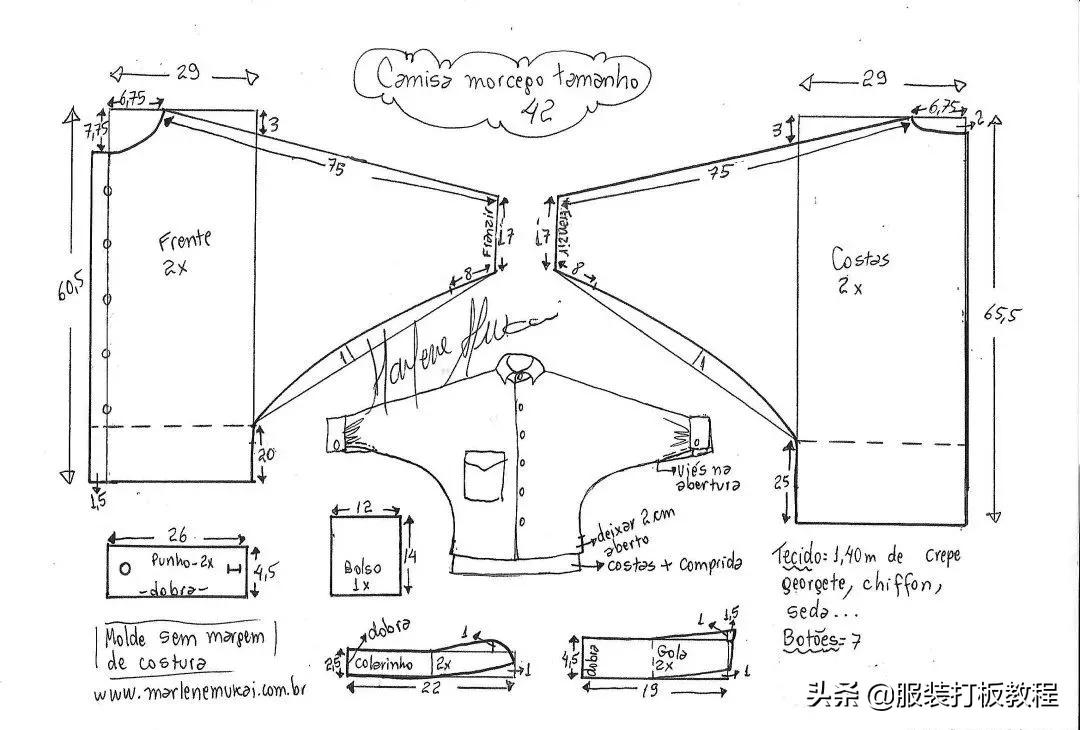 Camisa morcego tamanho
42
29
6,75
7,75
3
75
Franzir
17
8
1
Frente
2x
60,5
20
1,5
29
6,75
2
3
75
Franzir
17
8
1
Costas
2x
65,5
25
Marlene Mukai
26
Punho-2x
-dobra-
4,5
12
14
Bolso
1x
viés na
abertura
deixar 2cm
aberto
costas + comprida
Tecido: 1,40m de crepe
georgete, chiffon,
seda...
Botões=7
Molde sem margem
de costura
www.marlenemukai.com.br
dobra
1
2,5
Colarinho
2x
1
22
1
1,5
4,5
dobra
Gola
2x
1
19
头条 @服装打板教程